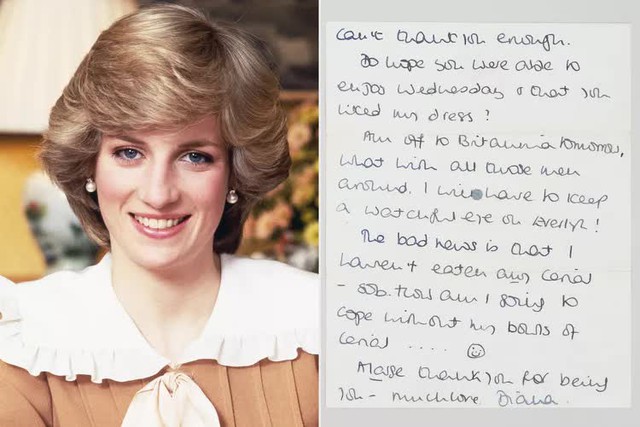 Can't thank you enough.
Do hope you were able to
enjoy Wednesday & that you
liked my dress?
Am off to Britannia tomorrow,
what with all those men
around. I will have to keep
a watchful eye on Evelyn!
The bad news is that I
haven't eaten any cereal
- sob. How am I going to
cope without my bowls of
cereal ....
Please thank you for being
you - much love, Diana.